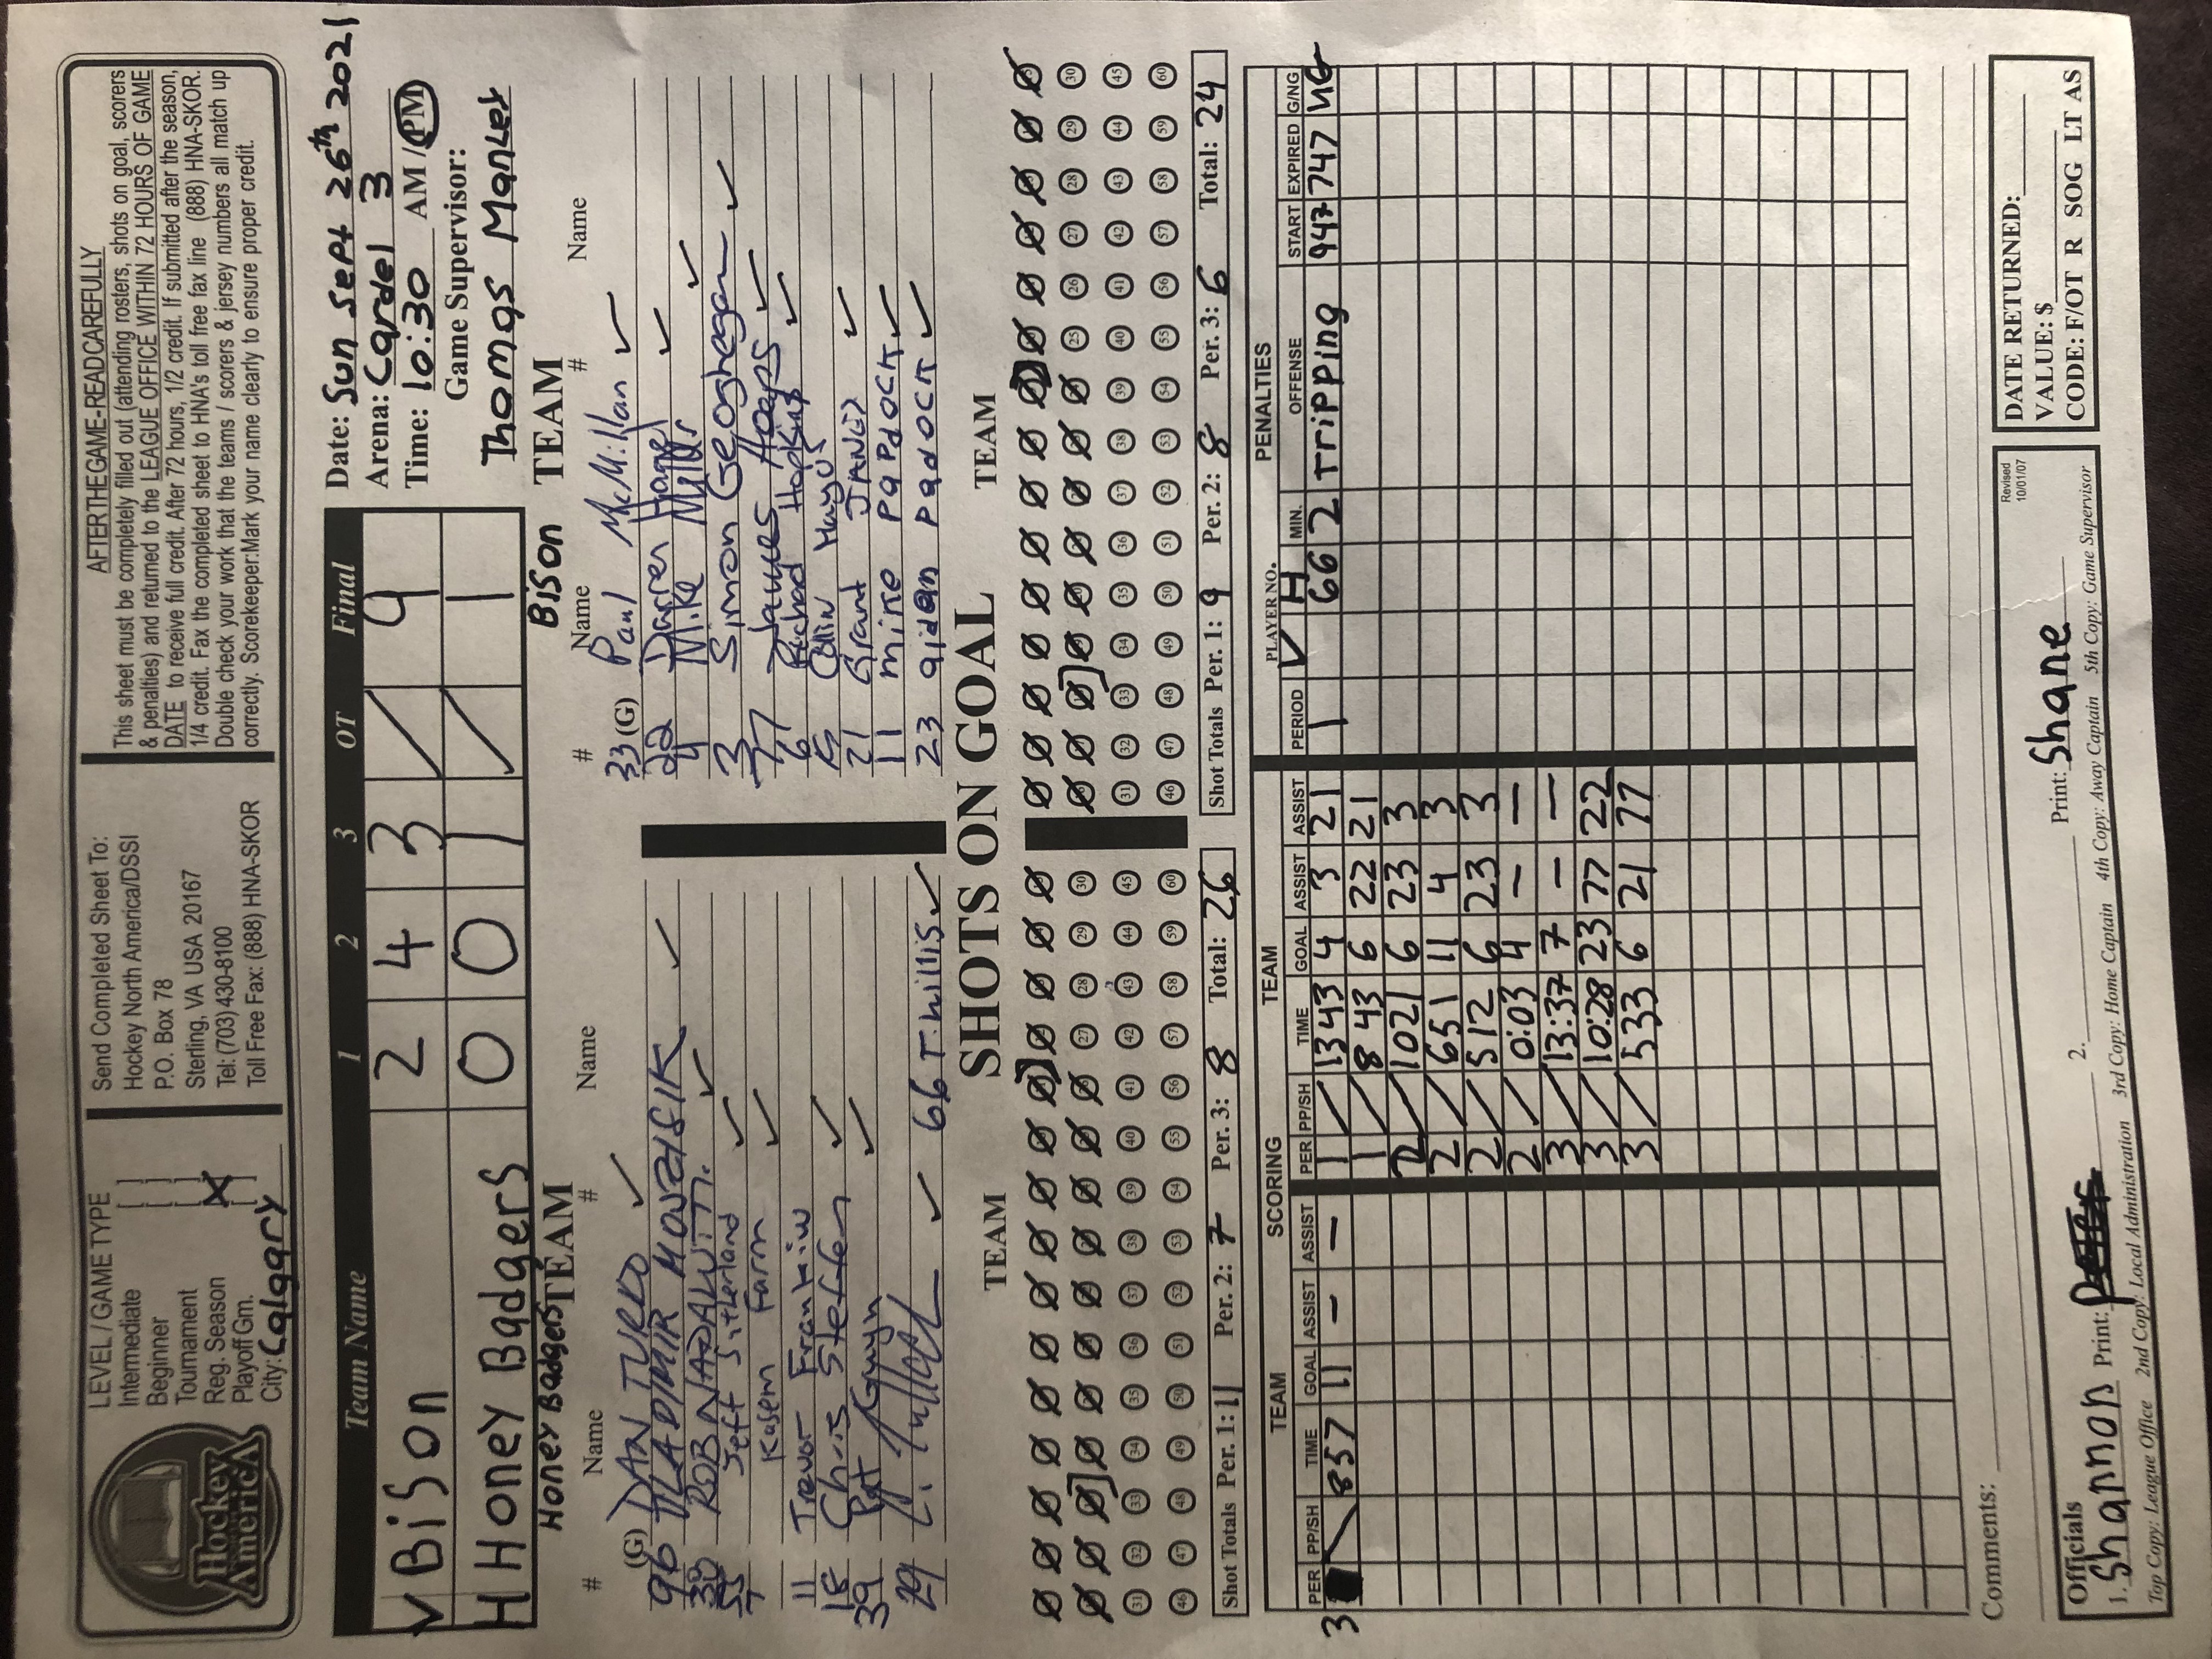 Hockey North America
LEVEL / GAME TYPE
Intermediate [ ]
Beginner [ ]
Tournament [ ]
Reg. Season [X]
Playoff Gm. [ ]
City: Calgary
Send Completed Sheet To:
Hockey North America/DSSI
P.O. Box 78
Sterling, VA USA 20167
Tel: (703) 430-8100
Toll Free Fax: (888) HNA-SKOR
AFTER THE GAME - READ CAREFULLY
This sheet must be completely filled out (attending rosters, shots on goal, scorers
& penalties) and returned to the LEAGUE OFFICE WITHIN 72 HOURS OF GAME
DATE to receive full credit. After 72 hours, 1/2 credit. If submitted after the season,
1/4 credit. Fax the completed sheet to HNA's toll free fax line (888) HNA-SKOR.
Double check your work that the teams / scorers & jersey numbers all match up
correctly. Scorekeeper: Mark your name clearly to ensure proper credit.
Team Name 1 2 3 OT Final
V Bison 2 4 3 / 9
H Honey Badgers 0 0 1 / 1
Date: Sun Sept 26th 2021
Arena: Cardel 3
Time: 10:30 AM / PM
Game Supervisor:
Thomas Manley
Honey Badgers TEAM
# Name # Name
96 (G) DAN TURKO ✓
VLADIMIR MOVZISIK ✓
ROB NARDALUTTI ✓
55 Jeff Sutherland ✓
7 Kasem Farm ✓
11 Trevor Frankiw ✓
18 Chris Steffen ✓
39 Pat Gwyn
29 ✓ 66 T. hillis ✓
Bison TEAM
# Name # Name
33 (G) Paul McMillan ✓
22 Darren Hagel ✓
4 Mike Mills ✓
3 Simon Geoghegan ✓
77 James Hoeps ✓
6 Richard Hopkins ✓
15 Collin Mayus
21 Grant JANZ ✓
11 mike Papdock ✓
23 aidan Padock ✓
SHOTS ON GOAL
TEAM TEAM
27 28 29 30
31 32 33 34 35 36 37 38 39 40 41 42 43 44 45
46 47 48 49 50 51 52 53 54 55 56 57 58 59 60
25 26 27 28 29 30
31 32 33 34 35 36 37 38 39 40 41 42 43 44 45
46 47 48 49 50 51 52 53 54 55 56 57 58 59 60
Shot Totals Per. 1: 11 Per. 2: 7 Per. 3: 8 Total: 26
Shot Totals Per. 1: 9 Per. 2: 8 Per. 3: 6 Total: 24
SCORING
TEAM TEAM
PER PP/SH TIME GOAL ASSIST ASSIST
3 / 857 11 - -
PER PP/SH TIME GOAL ASSIST ASSIST
1 / 1343 4 3 21
1 / 843 6 22 21
2 / 1021 6 23 3
2 / 651 11 4 3
2 / 512 6 23 3
2 / 0:03 4 - -
3 / 13:37 7 - -
3 / 10:28 23 77 22
3 / 533 6 21 77
PENALTIES
PERIOD PLAYER NO. V H MIN. OFFENSE START EXPIRED G/NG
1 66 2 Tripping 947 747 NG
Comments:
Officials
1. Shannon Print: 2. Print: Shane
Top Copy: League Office 2nd Copy: Local Administration 3rd Copy: Home Captain 4th Copy: Away Captain 5th Copy: Game Supervisor
Revised
10/01/07
DATE RETURNED:
VALUE: $
CODE: F/OT R SOG LT AS